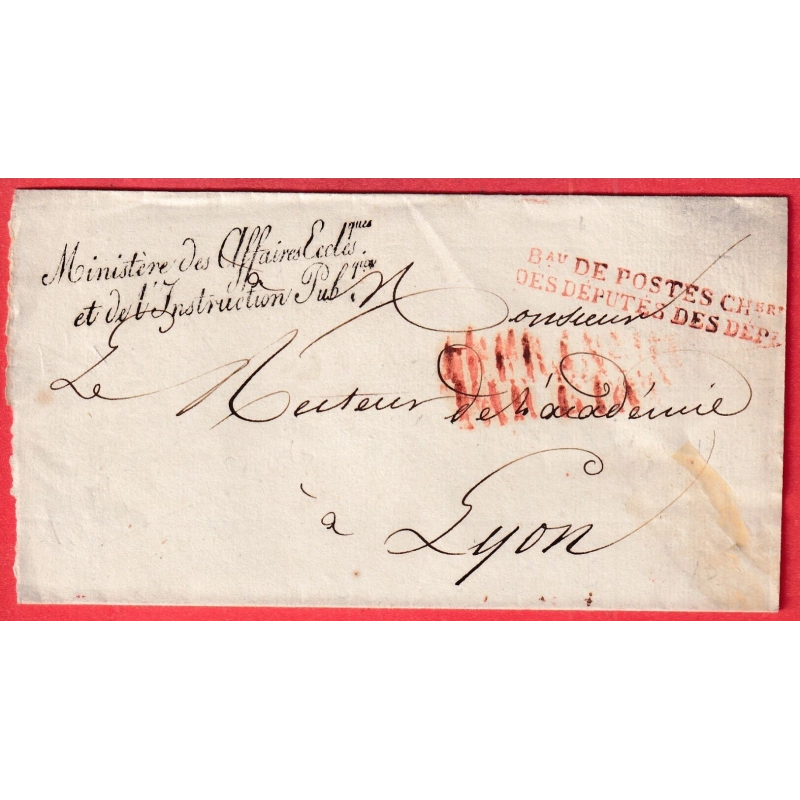 Ministère des Affaires Ecclés.ques
et de l'Instruction Pub.que
Bau DE POSTES CHbre
DES DÉPUTÉS DES DÉP
A
Monsieur
Le Recteur de l'académie
à Lyon